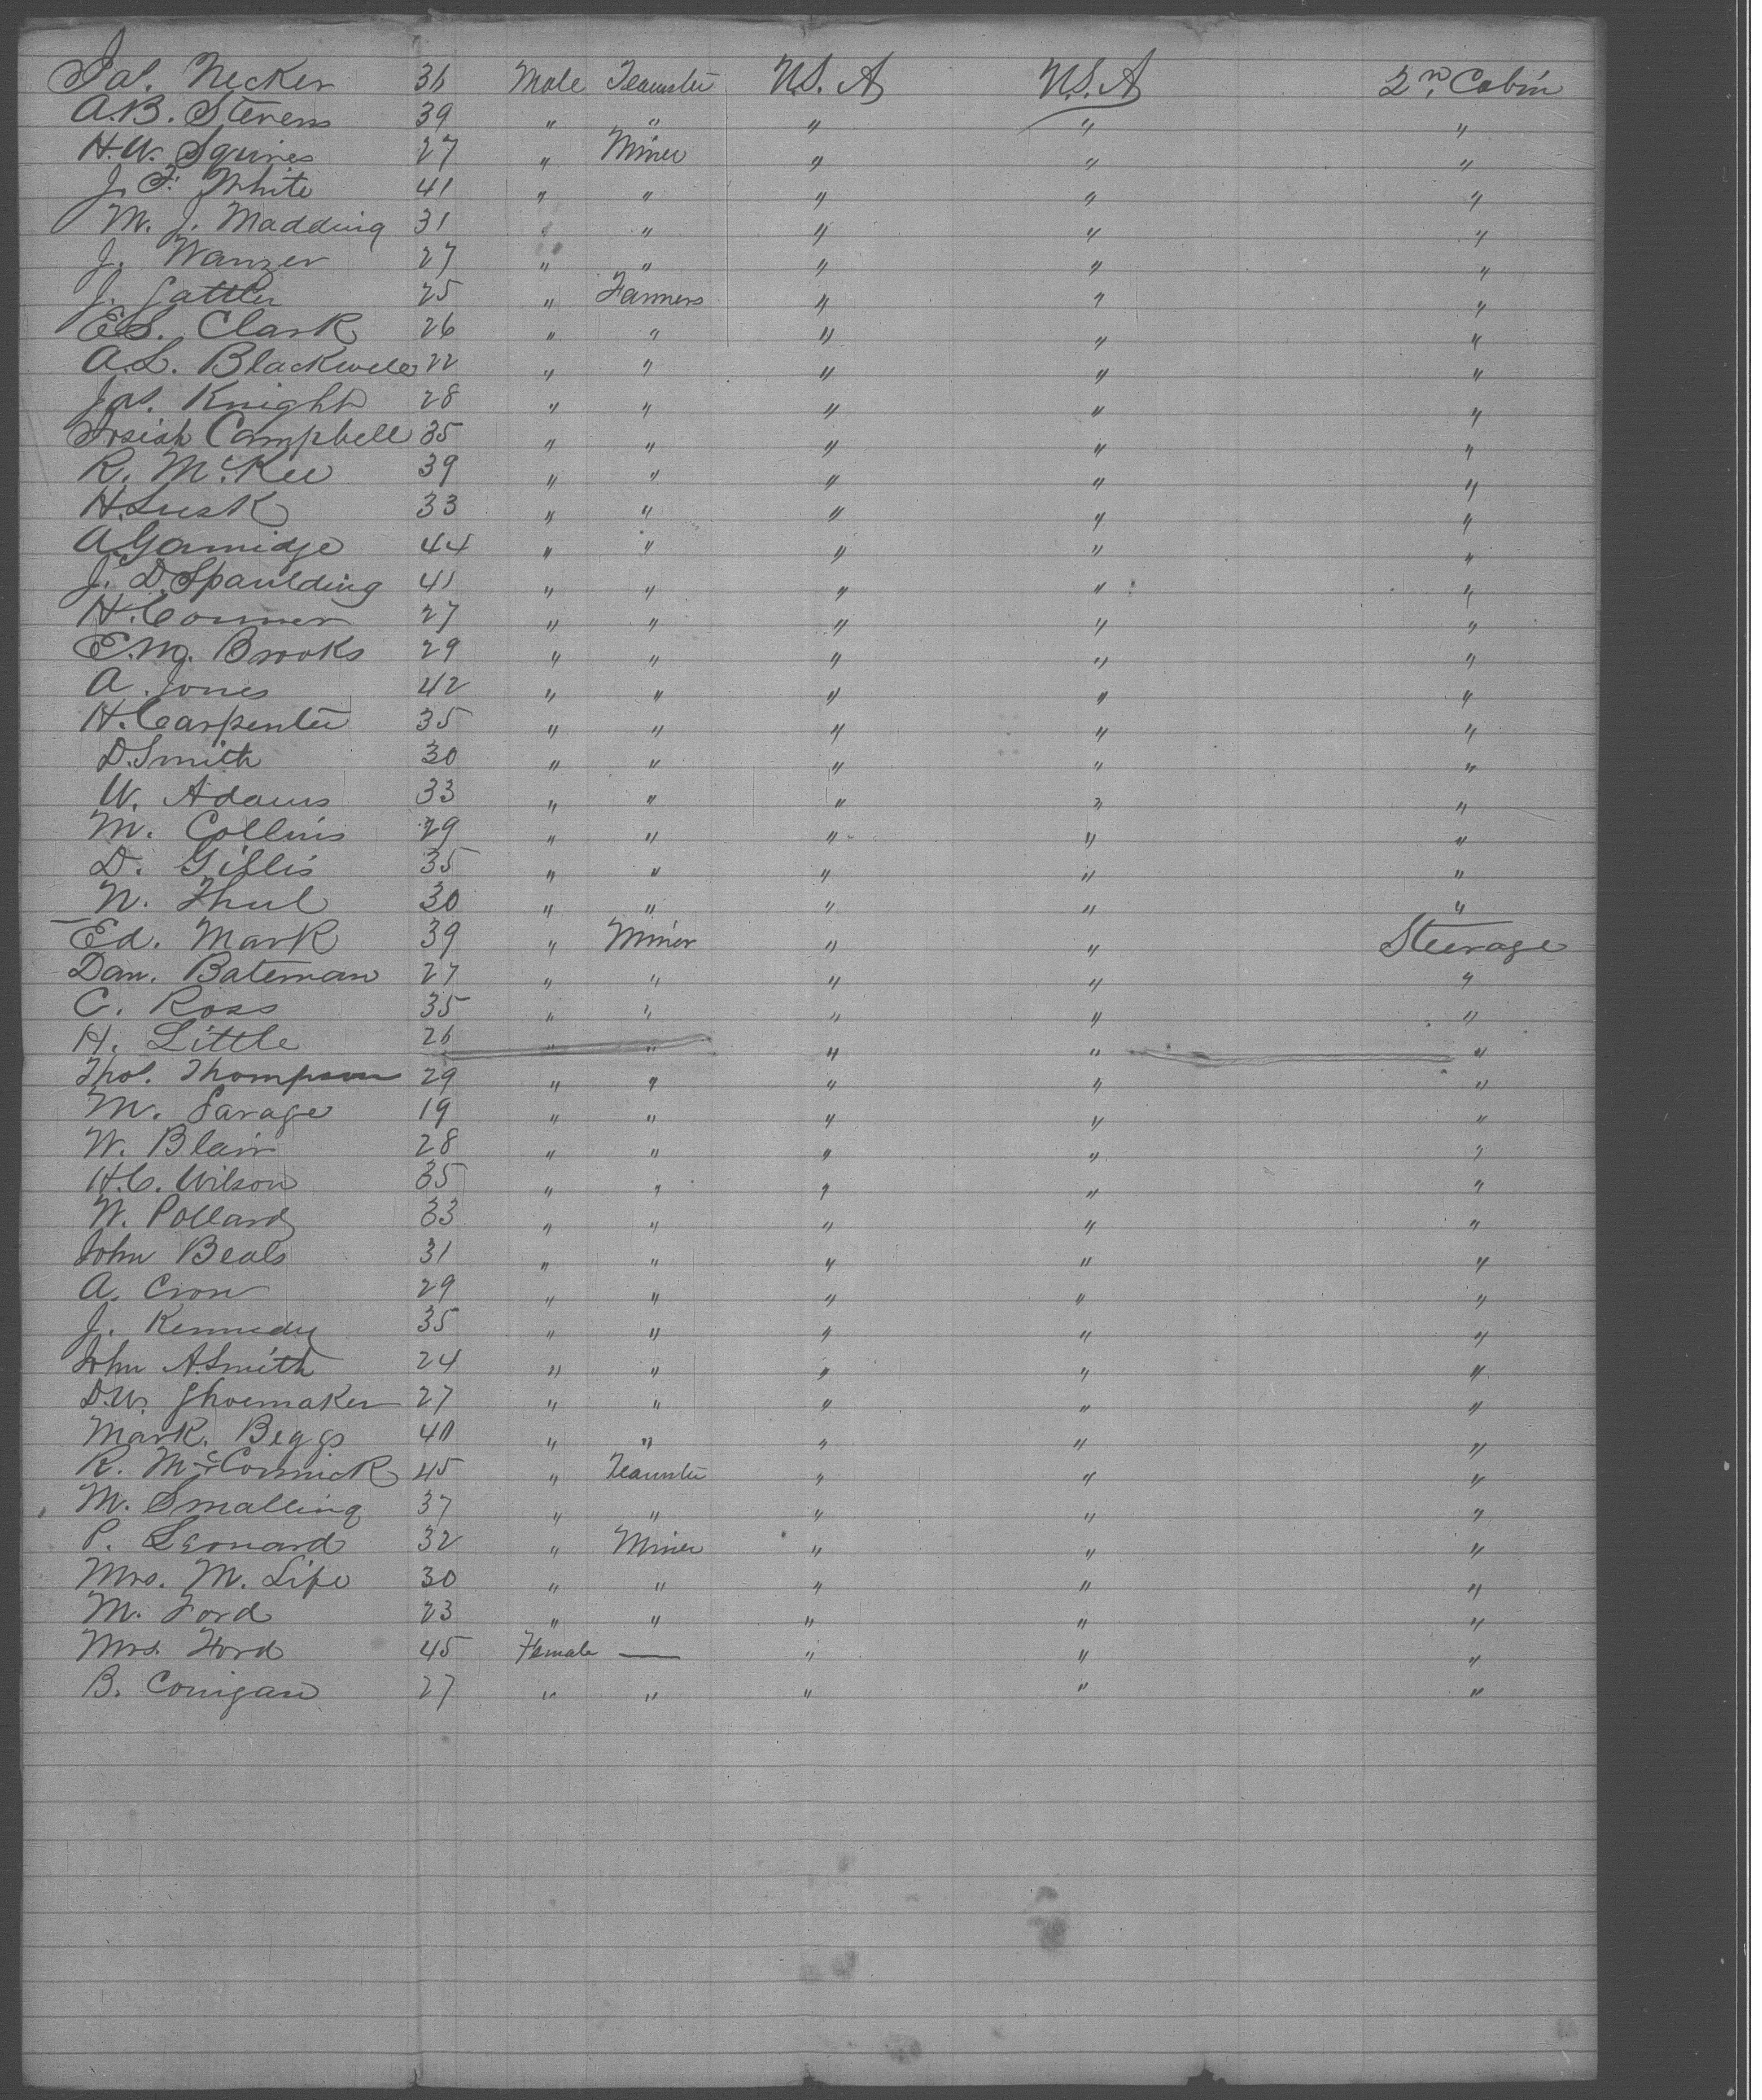 Jas. Necker 36 Male Teamster U.S. A U.S. A 2nd Cabin
A.B. Stevens 39 " " " " "
H.W. Squires 27 " Miner " " "
J. F. White 41 " " " " "
M. J. Madding 31 " " " " "
J. Wanzer 27 " " " " "
J. Sattler 25 " Farmers " " "
E.S. Clark 26 " " " " "
A.L. Blackwell 22 " " " " "
Jas. Knight 28 " " " " "
Josiah Campbell 35 " " " " "
R. McKee 39 " " " " "
H. Lusk 33 " " " " "
A. Gamidge 44 " " " " "
J. D. Spaulding 41 " " " " "
H. Conner 27 " " " " "
E.M. Brooks 29 " " " " "
A. Jones 42 " " " " "
H. Carpenter 35 " " " " "
D. Smith 30 " " " " "
W. Adams 33 " " " " "
M. Collins 29 " " " " "
D. Gillis 35 " " " " "
N. Thul 30 " " " " "
Ed. Mark 39 " Miner " " Steerage
Dan. Bateman 27 " " " " "
C. Ross 35 " " " " "
H. Little 26 " " " " "
Thos. Thompson 29 " " " " "
M. Savage 19 " " " " "
W. Blair 28 " " " " "
H.C. Wilson 35 " " " " "
W. Pollard 33 " " " " "
John Beals 31 " " " " "
A. Crow 29 " " " " "
J. Kennedy 35 " " " " "
John A. Smith 24 " " " " "
D.W. Shoemaker 27 " " " " "
Mark. Beggs 40 " " " " "
R. McCormick 45 " Teamster " " "
M. Smalling 37 " " " " "
P. Leonard 32 " Miner " " "
Mrs. M. Life 30 " " " " "
M. Ford 23 " " " " "
Mrs. Ford 45 Female — " " "
B. Corrigan 27 " " " " "